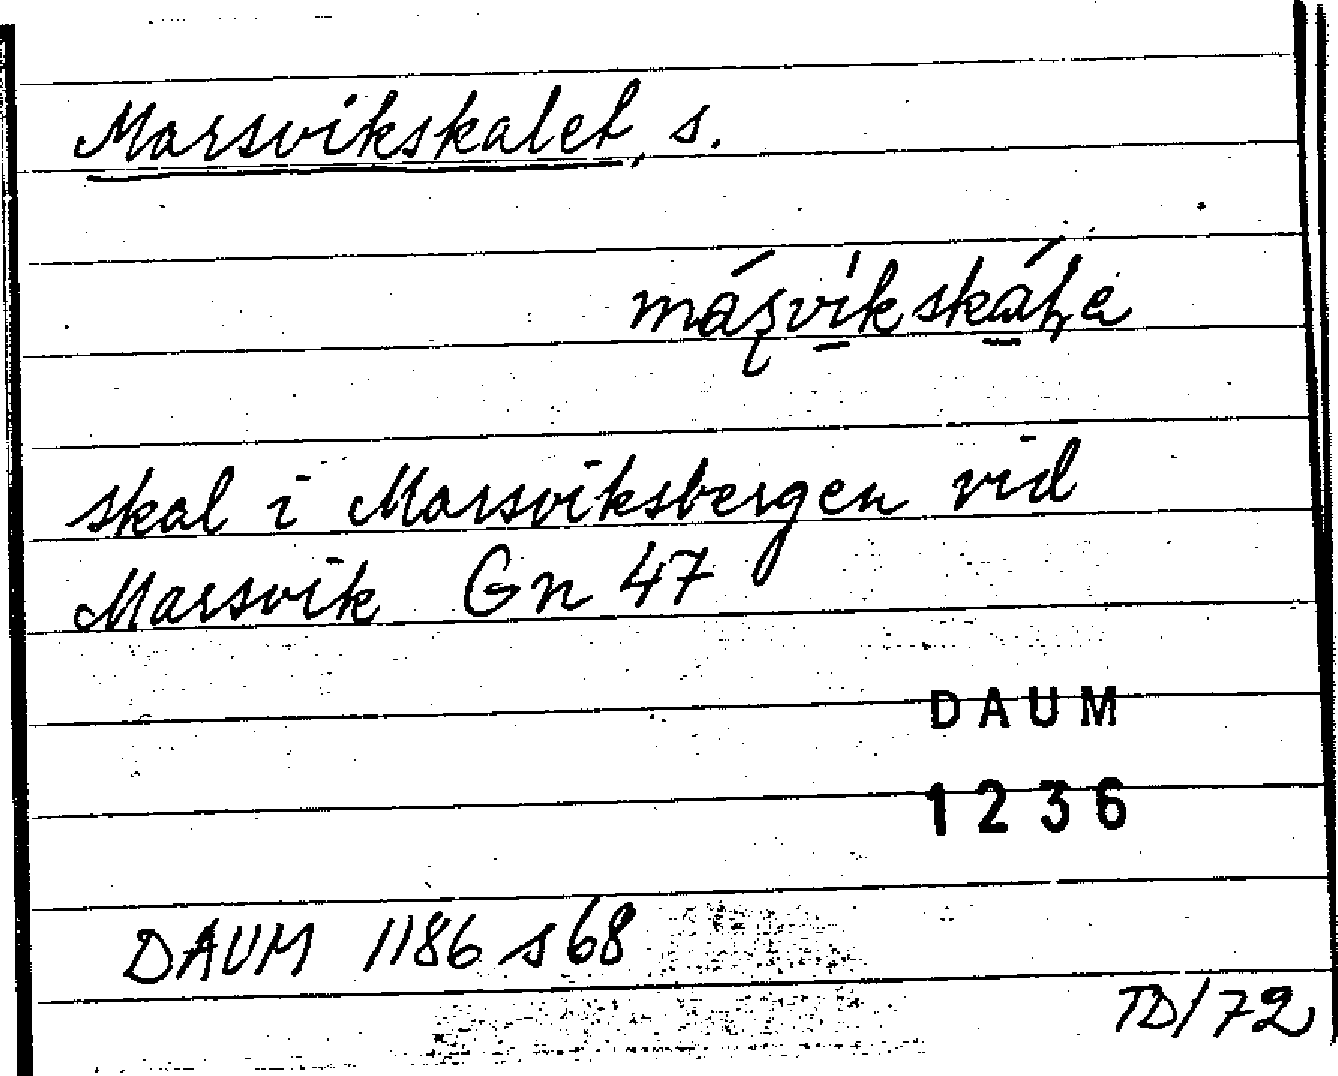 Marsvikskalet, s.
skal i Marsviksbergen vid
Marsvik Gn 47
DAUM
1236
DAUM 1186 s 68
TD/72